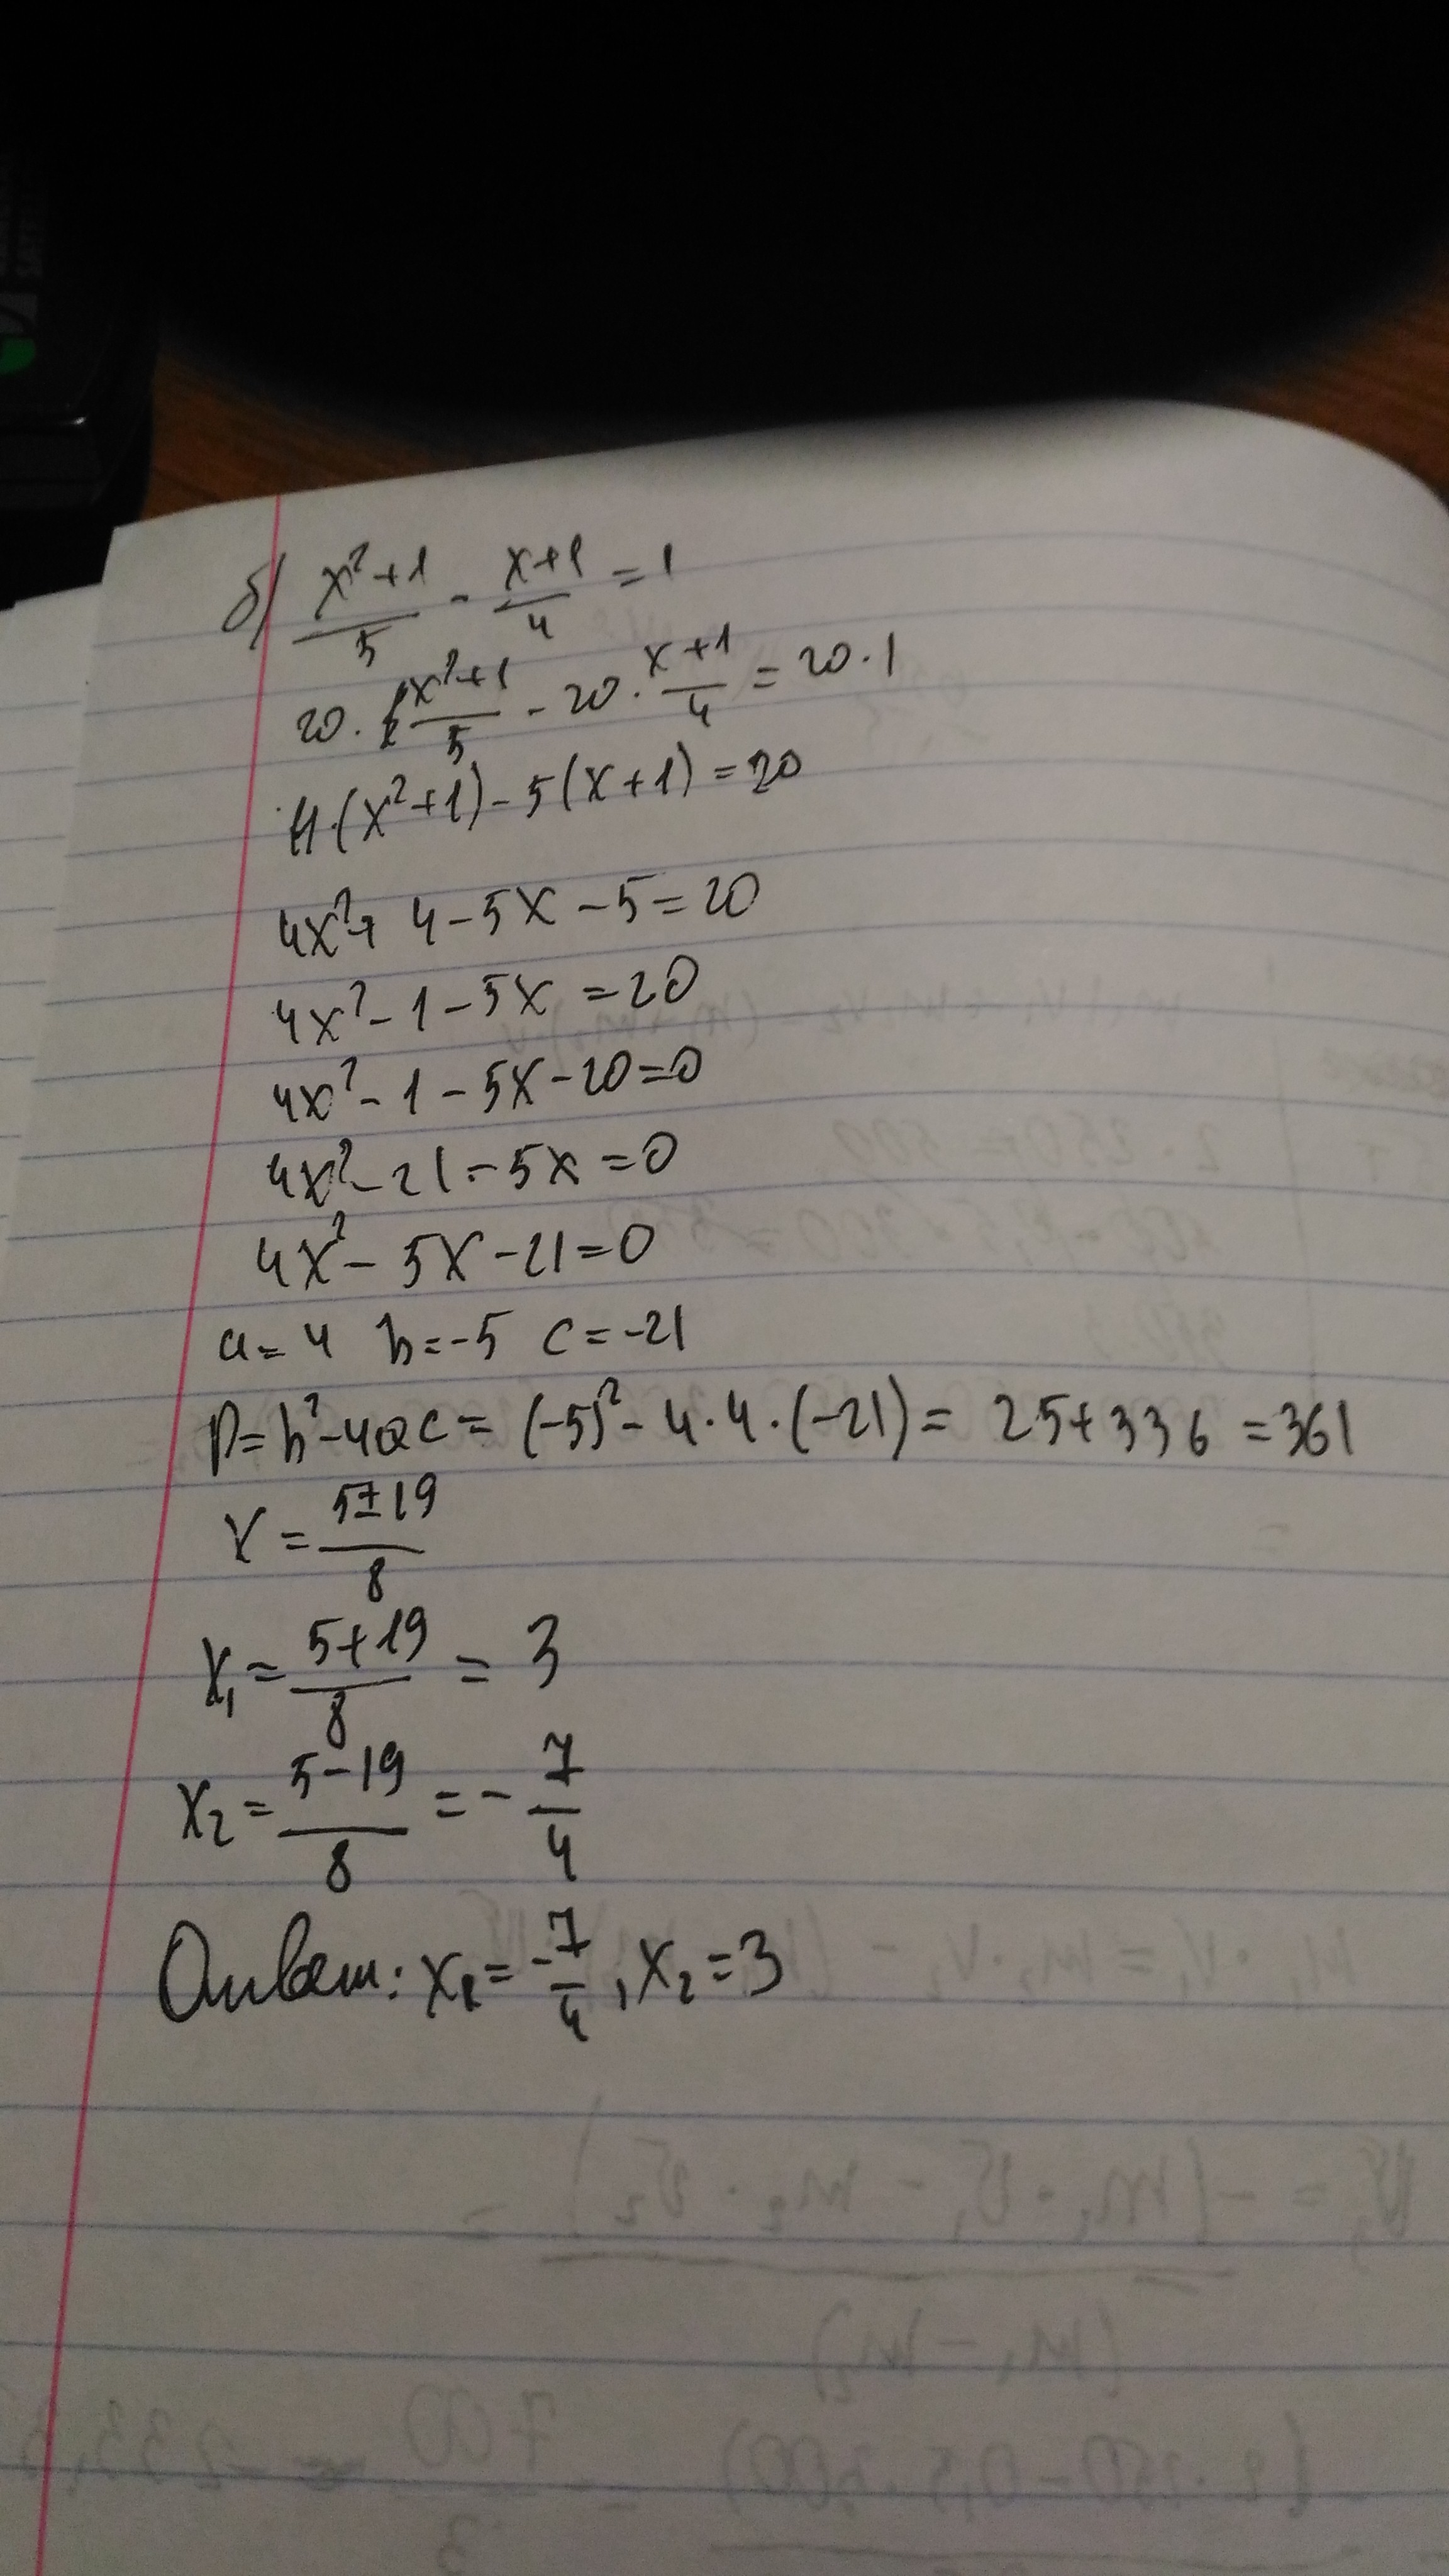 б) (x²+1)/5 - (x+1)/4 = 1
20 · (x²+1)/5 - 20 · (x+1)/4 = 20 · 1
4·(x²+1) - 5(x+1) = 20
4x²+ 4 - 5x - 5 = 20
4x² - 1 - 5x = 20
4x² - 1 - 5x - 20 = 0
4x² - 21 - 5x = 0
4x² - 5x - 21 = 0
a = 4 b = -5 c = -21
D = b² - 4ac = (-5)² - 4 · 4 · (-21) = 25 + 336 = 361
x = (5 ± 19)/8
x₁ = (5+19)/8 = 3
x₂ = (5-19)/8 = - 7/4
Ответ: x₁ = -7/4 , x₂ = 3